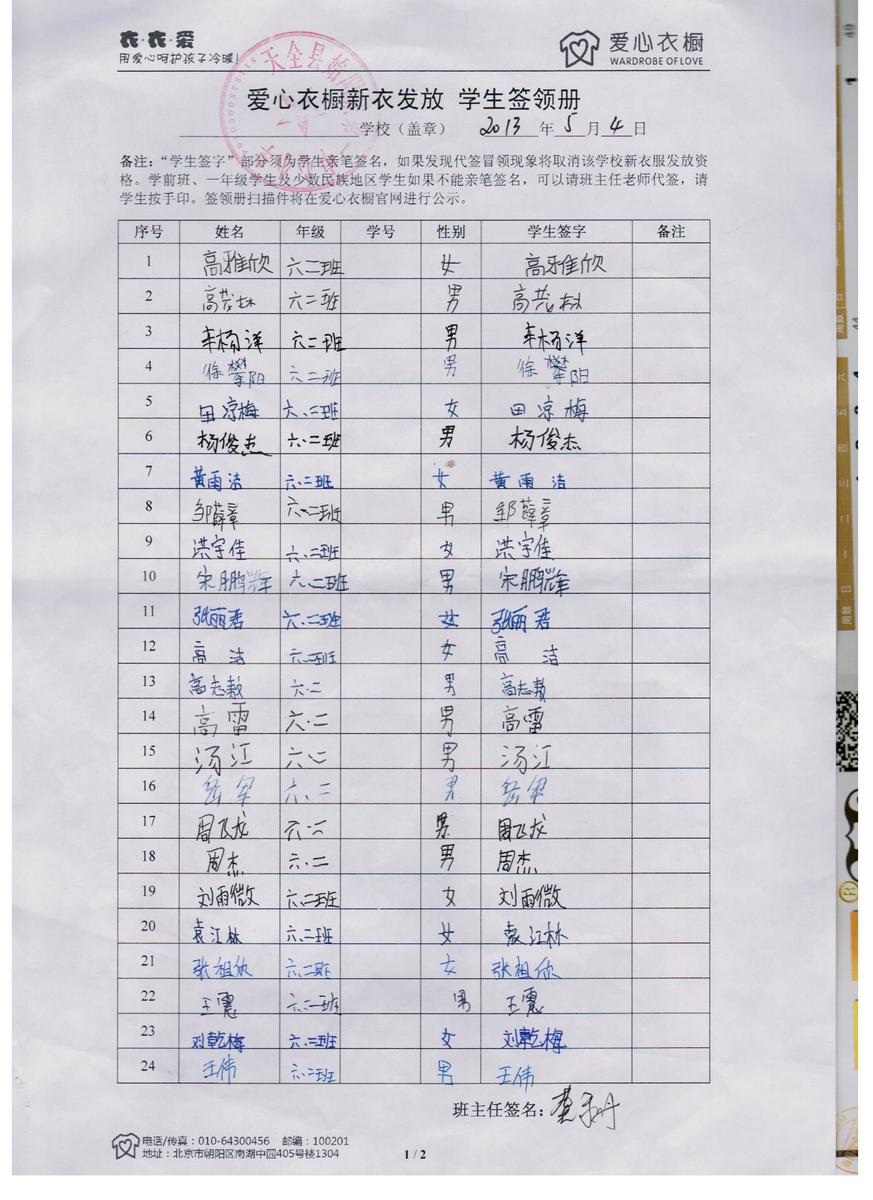 衣·衣·爱
用爱心呵护孩子冷暖!
爱心衣橱
WARDROBE OF LOVE
天全县始
爱心衣橱新衣发放 学生签领册
学校（盖章） 2013 年 5 月 4 日
备注：“学生签字”部分须为学生亲笔签名，如果发现代签冒领现象将取消该学校新衣服发放资
格。学前班、一年级学生及少数民族地区学生如果不能亲笔签名，可以请班主任老师代签，请
学生按手印。签领册扫描件将在爱心衣橱官网进行公示。
序号 姓名 年级 学号 性别 学生签字 备注
1 高雅欣 六二班 女 高雅欣
2 高茂林 六二班 男 高茂林
3 牟杨洋 六二班 男 牟杨洋
4 徐攀阳 六二班 男 徐攀阳
5 田凉梅 六.二班 女 田凉梅
6 杨俊杰 六.二班 男 杨俊杰
7 黄雨洁 六.二班 女 黄雨洁
8 邹薛章 六.二班 男 邹薛章
9 洪宇佳 六.二班 女 洪宇佳
10 宋鹏辉 六.二班 男 宋鹏辉
11 张丽君 六.二班 女 张丽君
12 高洁 六.二班 女 高洁
13 高志敖 六.二 男 高志敖
14 高雷 六.二 男 高雷
15 汤江 六.二 男 汤江
16 六.二 男
17 周飞龙 六.二 男 周飞龙
18 周杰 六.二 男 周杰
19 刘雨微 六.二班 女 刘雨微
20 袁江林 六.二班 女 袁江林
21 张祖欣 六.二班 女 张祖欣
22 王震 六.二班 男 王震
23 刘乾梅 六.二班 女 刘乾梅
24 王伟 六.二班 男 王伟
班主任签名：
电话/传真：010-64300456 邮编：100201
地址：北京市朝阳区南湖中园405号楼1304
1 / 2